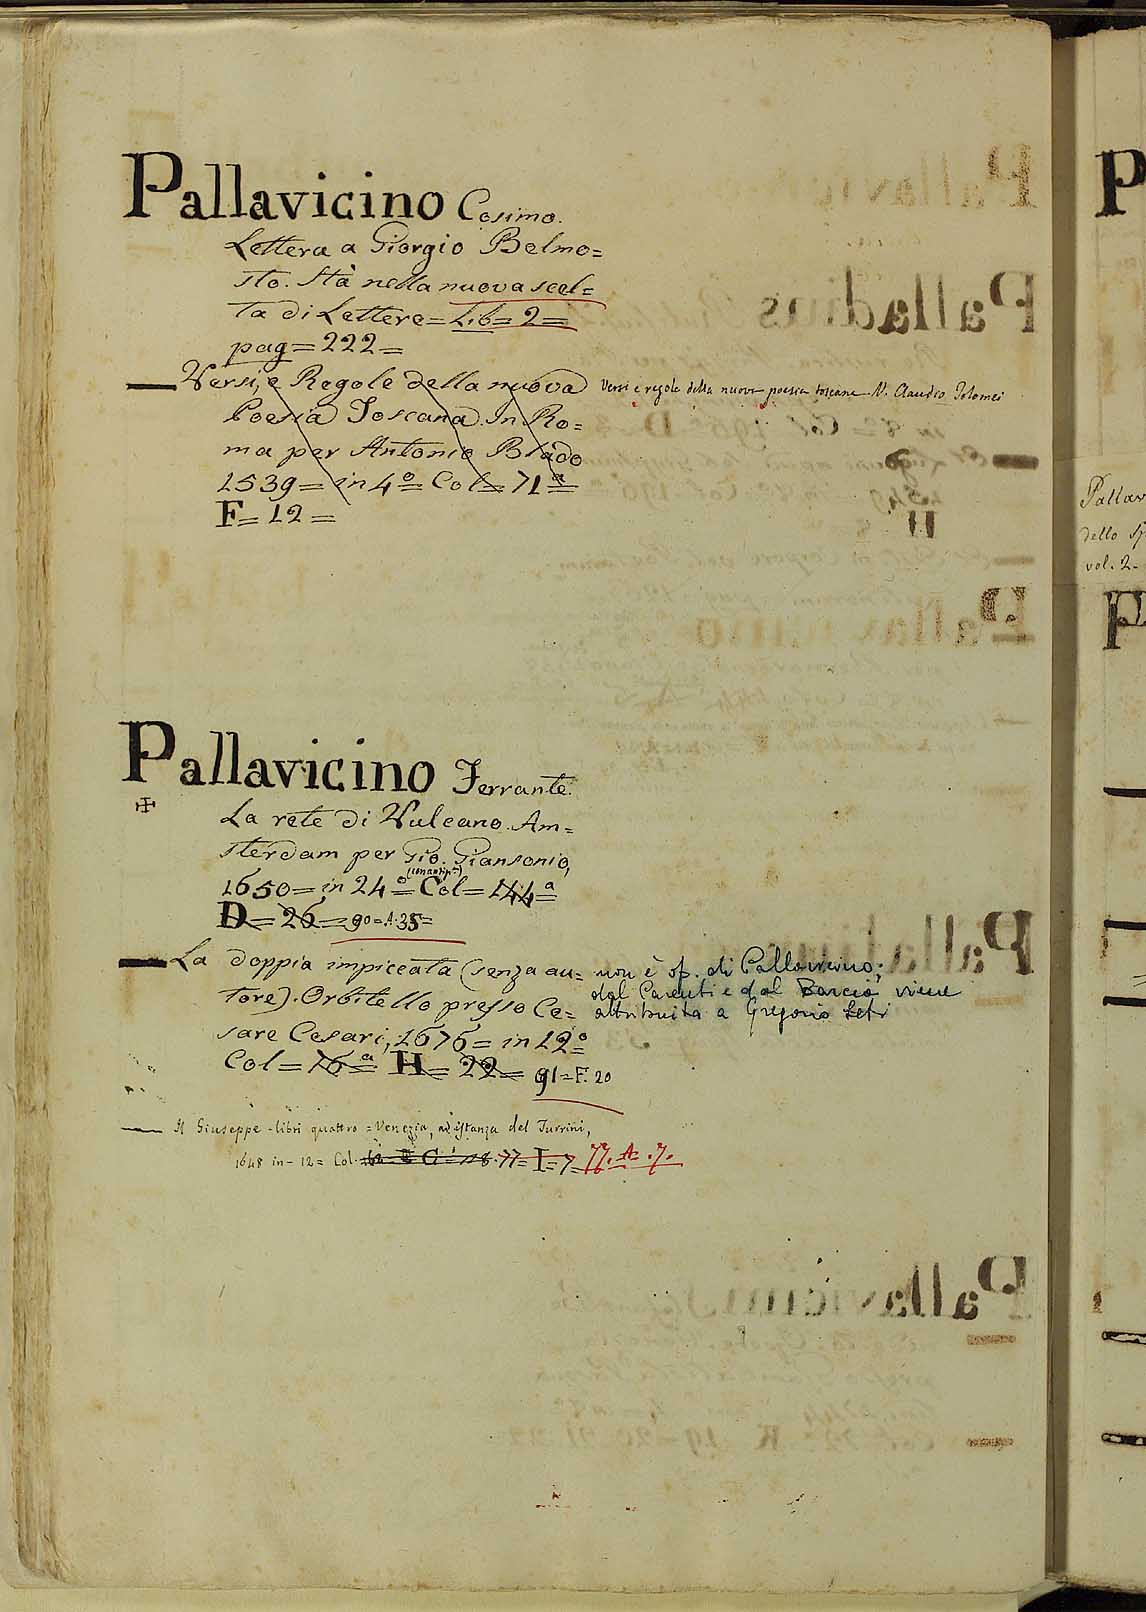 Pallavicino Cosimo.
Lettera a Giorgio Belmo=
sto. Stà nella nuova scel=
ta di Lettere = Lib = 2 =
pag = 222 =
Versi, e Regole della nuova
Poesia Toscana. In Ro=
ma per Antonio Blado
1539 = in 4º = Col = 71ª =
F = 12 =
Versi e regole della nuova poesia toscana V. Claudio Tolomei
Pallavicino Ferrante.
La rete di Vulcano. Am=
sterdam per Gio. Giansonio,
1650 = in 24º = Col = 144ª =
D = 26 = 90 = A. 35 =
La doppia impiccata (senza au=
tore). Orbitello presso Ce=
sare Cesari, 1676 = in 12º =
Col = 76ª = H = 22 = 91 = F. 20
non è op. di Pallavicino;
dal Parenti e dal Barcia viene
attribuita a Gregorio Leti
Il Giuseppe - libri quattro = Venezia, ad istanza del Turrini,
1648 in - 12 = Col. 77 = I = 7 = 77. A. 7.
Pallav
dello Sp
vol. 2 -